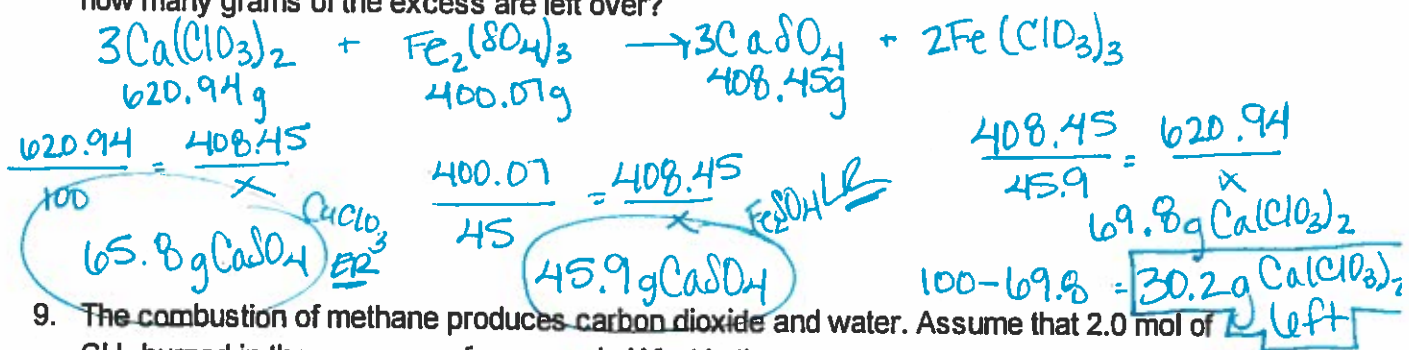 how many grams of the excess are left over?
3Ca(ClO3)2 + Fe2(SO4)3 → 3CaSO4 + 2Fe(ClO3)3
620.94g 400.07g 408.45g
620.94/100 = 408.45/x
65.8g CaSO4
CaClO3 ER
400.07/45 = 408.45/x
45.9g CaSO4
Fe2SO4 LR
408.45/45.9 = 620.94/x
69.8g Ca(ClO3)2
100-69.8 = 30.2g Ca(ClO3)2
left
9. The combustion of methane produces carbon dioxide and water. Assume that 2.0 mol of